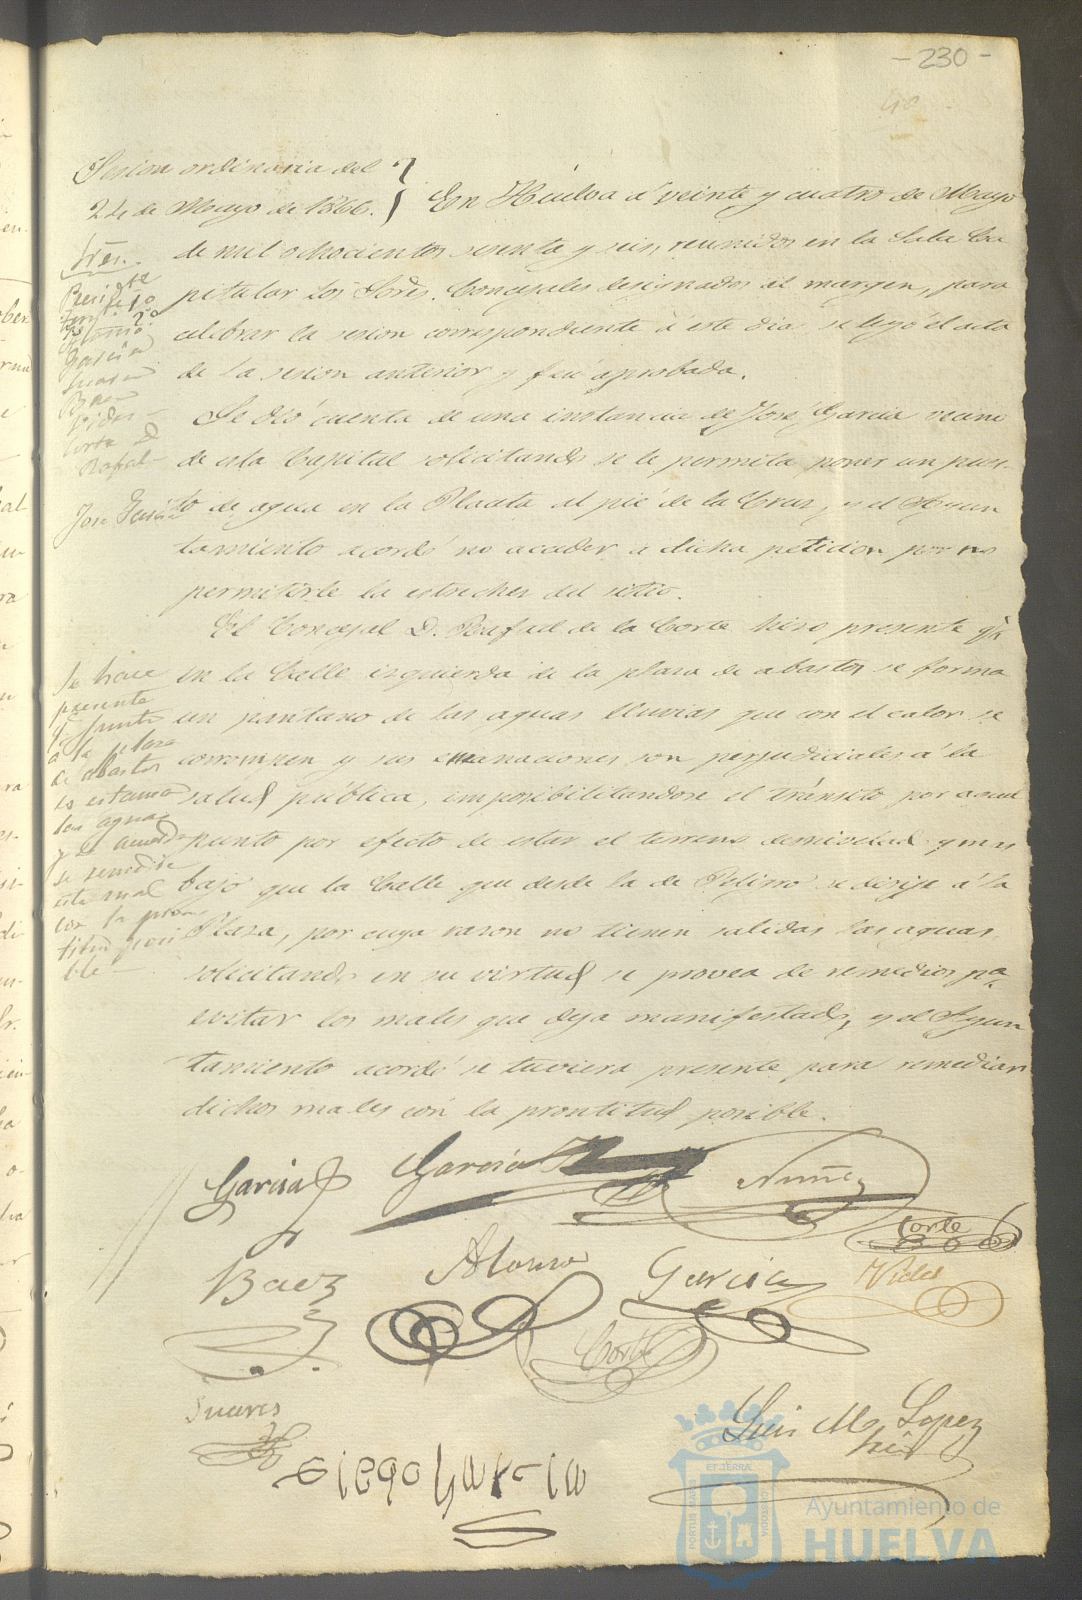 - 230 -
40
Sesion ordinaria del
24 de Mayo de 1866. } En Huelva á veinte y cuatro de Mayo
de mil ochocientos sesenta y seis, reunidos en la Sala Ca
pitular los Sores. Concejales designados al margen, para
celebrar la sesion correspondiente á este dia se leyó el acta
de la sesion anterior y fué aprobada.
Se dió cuenta de una instancia de José Garcia vecino
de esta Capital solicitando se le permita poner un pues-
to de agua en la Placeta al pié de la Cruz, y el Ayun
tamiento acordó no acceder a dicha peticion por no
permitirle la estrechez del sitio.
El Concejal D. Rafael de la Corte hizo presente qe
en la Calle izquierda de la plaza de abastos se forma
un pantano de las aguas lluvias que con el calor se
corrompen y sus emanaciones son perjudiciales á la
salud pública, imposibilitandose el tránsito por aquel
punto por efecto de estar el terreno desnivelado y mas
bajo que la Calle que desde la de se dirije á la
Plaza, por cuya razon no tienen salidas las aguas,
solicitando en su virtud se provea de remedios pa
evitar los males que deja manifestado, y el Ayun
tamiento acordó se tuviera presente para remediar
dichos males con la prontitud posible.
Sres.
Preside
Tente 1º
2º
Garcia
Suares
Baez
Vides
Corte D
Rafael
Jose Garcia
Se hace
presente
q. junto
a la plaza
de abastos
se estancan
las aguas
y se acuerda
se remedie
este mal
con la pron
titud posi
ble
Garcia
Garcia
Nuñez
Corte
Baez
Alonso
Garcia
Vides
Corte
Suares
Luis M. Lopez
Diego Garcia
PORTUS MARIS
ET TERRÆ
CUSTODIA
Ayuntamiento de
HUELVA